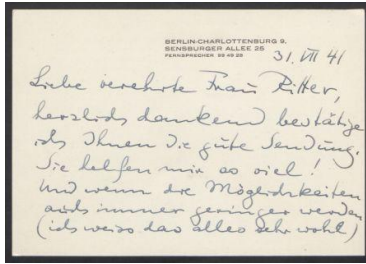 BERLIN-CHARLOTTENBURG 9,
SENSBURGER ALLEE 25
FERNSPRECHER 99 49 25
31. VIII 41
Liebe verehrte Frau Ritter,
herzlich dankend bestätige
ich Ihnen die gute Sendung.
Sie helfen mir so viel!
Und wenn die Möglichkeiten
auch immer geringer werden
(ich weiss das alles sehr wohl)